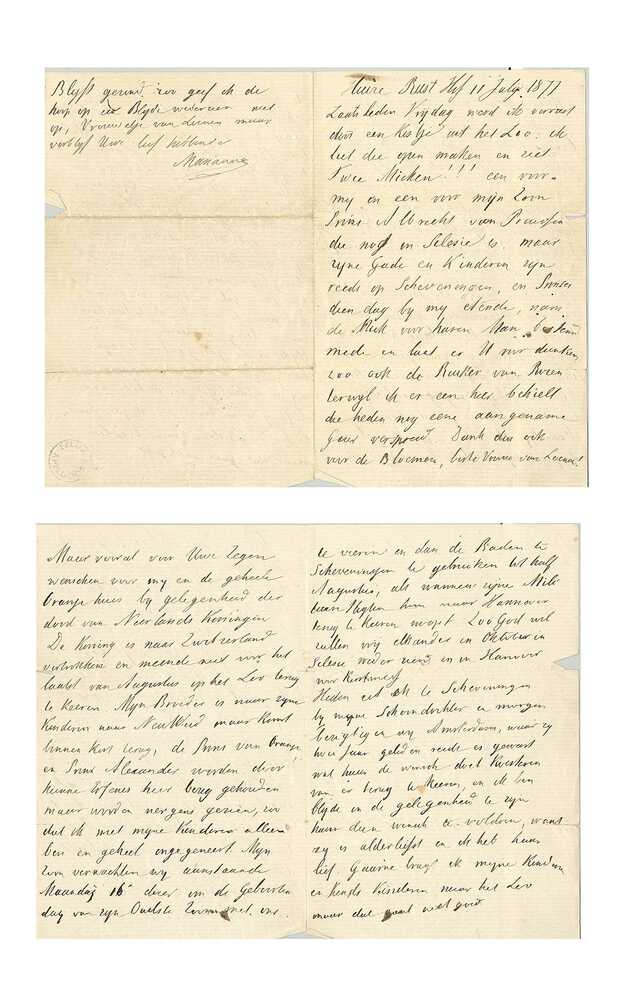 Huize Rust Hof 11 July 1877
Laatstleden Vrijdag werd ik verrast
door een Kistje uit het Loo. ik
liet die open maken en ziet
Twee Mikken!!! een voor
my en een voor mijn Zoon
Prins Albrecht van Pruissen
die nog in Silesie is. maar
zyne Gade en Kinderen zyn
reeds op Scheveningen, en Prinses
dien dag by my etende, nam
de Mik voor haren Man
mede en laat er U voor danken
zoo ook de Ruiker van Rozen
terwyl ik er een hier behield
die heden nog eene aangename
geur verspreid. Dank dus ook
voor de Bloemen, beste Vrouw van Leenen!
Maar vooral voor Uwe Zegen
wenschen voor my en de geheele
Oranje huis by gelegenheid der
dood van Neerlands Koningin
De Koning is naar Zwitzerland
vertrokken en meende niet voor het
laatst van Augustus op het Loo terug
te keeren. Mijn Broeder is naar zyne
Kinderen naar NeuWied maar komt
binnen kort terug, de Prins van Oranje
en Prins Alexander worden door
hier bezig gehouden
maar worden nergens gezien, zoo
dat ik met myne Kinderen alleen
ben en geheel ongegeneerd. Myn
Zoon verwachten wy aanstaande
Maandag 16 dezer om de Geboorte
dag van zyn Oudste Zoon met ons
te vieren en dan de Baden te
Scheveningen te gebruiken tot half
Augustus, als wanneer zyne Mili
taire Pligten hem naar Hannover
terug te keeren noopt. Zoo God wil
zullen wy elkander in Oktober in
Silesie weder zien en in Hanover
voor Kerstmis
Heden eet ik te Scheveningen
by myne Schoondochter en morgen
bezigtigen wy Amsterdam, waar zy
twee Jaar geleden reeds is geweest
wat haar de wensch doet
van er terug te keeren, en ik ben
blyde in de gelegenheid te zyn
haar dien wensch te voldoen, want
zy is allerliefst en ik heb haar
lief. Gaarne bragt ik myne Kinderen
en Kinderen naar het Loo
maar dat gaat niet goed
Blyft gezond, zoo geef ik de
hoop op een Blyde wederzien niet
op, Vrouwetje van Leenen maar
verblyf Uwe lief hebbende
Marianne